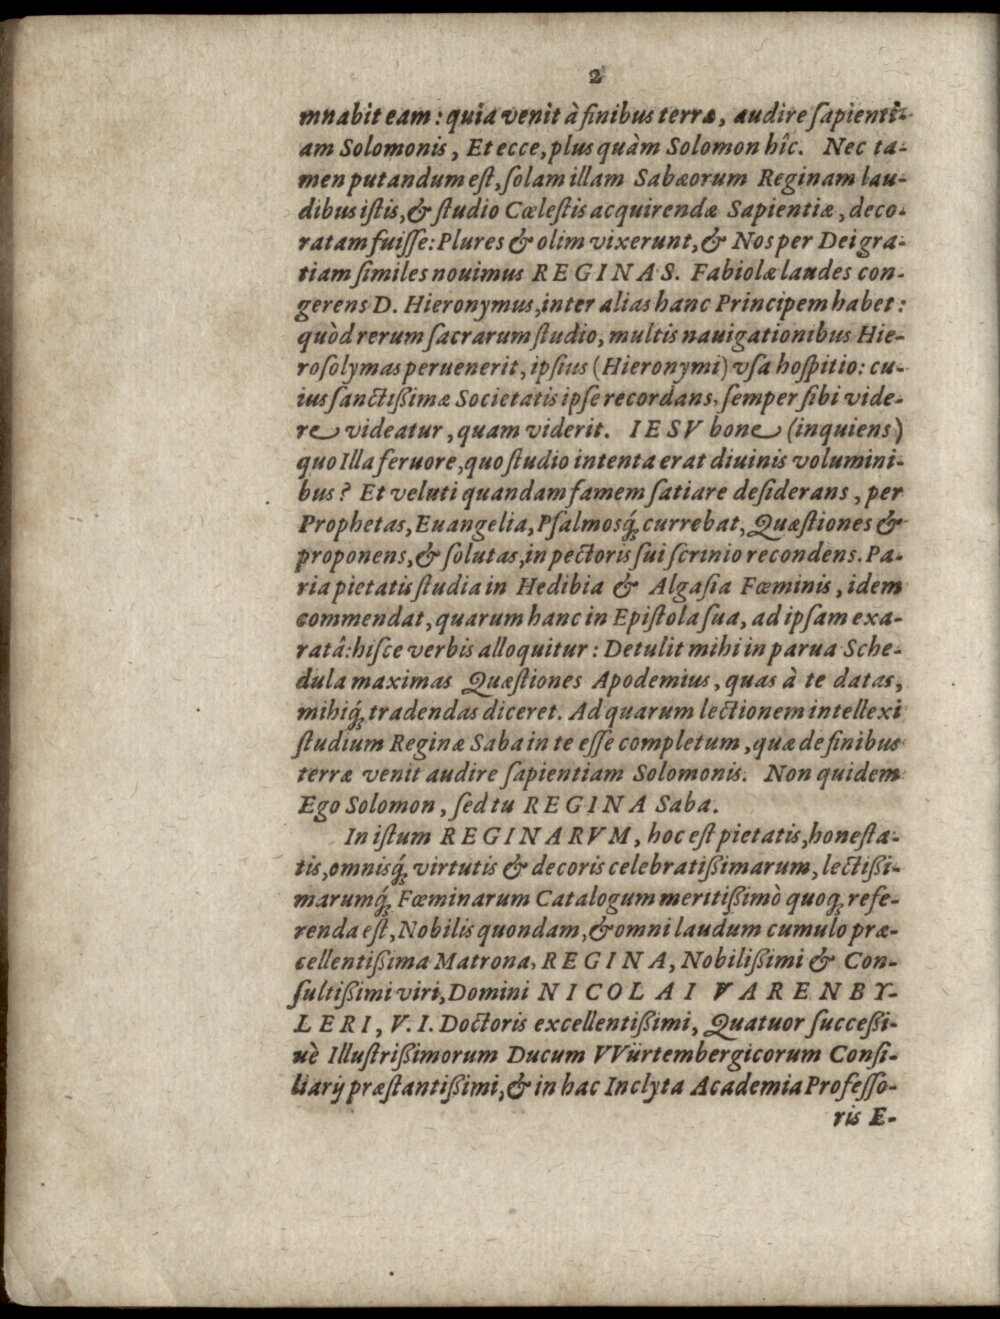 2
mnabit eam: quia venit à finibus terræ, audire ſapienti-
am Solomonis, Et ecce, plus quàm Solomon hîc. Nec ta-
men putandum eſt, ſolam illam Sabæorum Reginam lau-
dibus iſtis, & ſtudio Cœleſtis acquirendæ Sapientiæ, deco-
ratam fuiſſe: Plures & olim vixerunt, & Nos per Dei gra-
tiam ſimiles nouimus REGINAS. Fabiolæ laudes con-
gerens D. Hieronymus, inter alias hanc Principem habet:
quòd rerum ſacrarum ſtudio, multis nauigationibus Hie-
roſolymas peruenerit, ipſius (Hieronymi) vſa hoſpitio: cu-
ius ſanctißimæ Societatis ipſe recordans, ſemper ſibi vide-
re videatur, quam viderit. IESV bone (inquiens)
quo Illa feruore, quo ſtudio intenta erat diuinis volumini-
bus? Et veluti quandam famem ſatiare deſiderans, per
Prophetas, Euangelia, Pſalmosq́ꝫ currebat, Quæſtiones &
proponens, & ſolutas, in pectoris ſui ſcrinio recondens. Pa-
ria pietatis ſtudia in Hedibia & Algaſia Fœminis, idem
commendat, quarum hanc in Epiſtola ſua, ad ipſam exa-
ratâ: hiſce verbis alloquitur: Detulit mihi in parua Sche-
dula maximas Quæſtiones Apodemius, quas à te datas,
mihiq́ꝫ tradendas diceret. Ad quarum lectionem intellexi
ſtudium Reginæ Saba in te eſſe completum, quæ de finibus
terræ venit audire ſapientiam Solomonis. Non quidem
Ego Solomon, ſed tu REGINA Saba.
In iſtum REGINARVM, hoc eſt pietatis, honeſta-
tis, omnisq́ꝫ virtutis & decoris celebratißimarum, lectißi-
marumq́ꝫ Fœminarum Catalogum meritißimò quoqꝫ refe-
renda eſt, Nobilis quondam, & omni laudum cumulo præ-
cellentißima Matrona, REGINA, Nobilißimi & Con-
ſultißimi viri, Domini NICOLAI VARENBY-
LERI, V. I. Doctoris excellentißimi, Quatuor ſucceßi-
uè Illuſtrißimorum Ducum VVürtembergicorum Conſi-
liarij præſtantißimi, & in hac Inclyta Academia Profeſſo-
ris E-